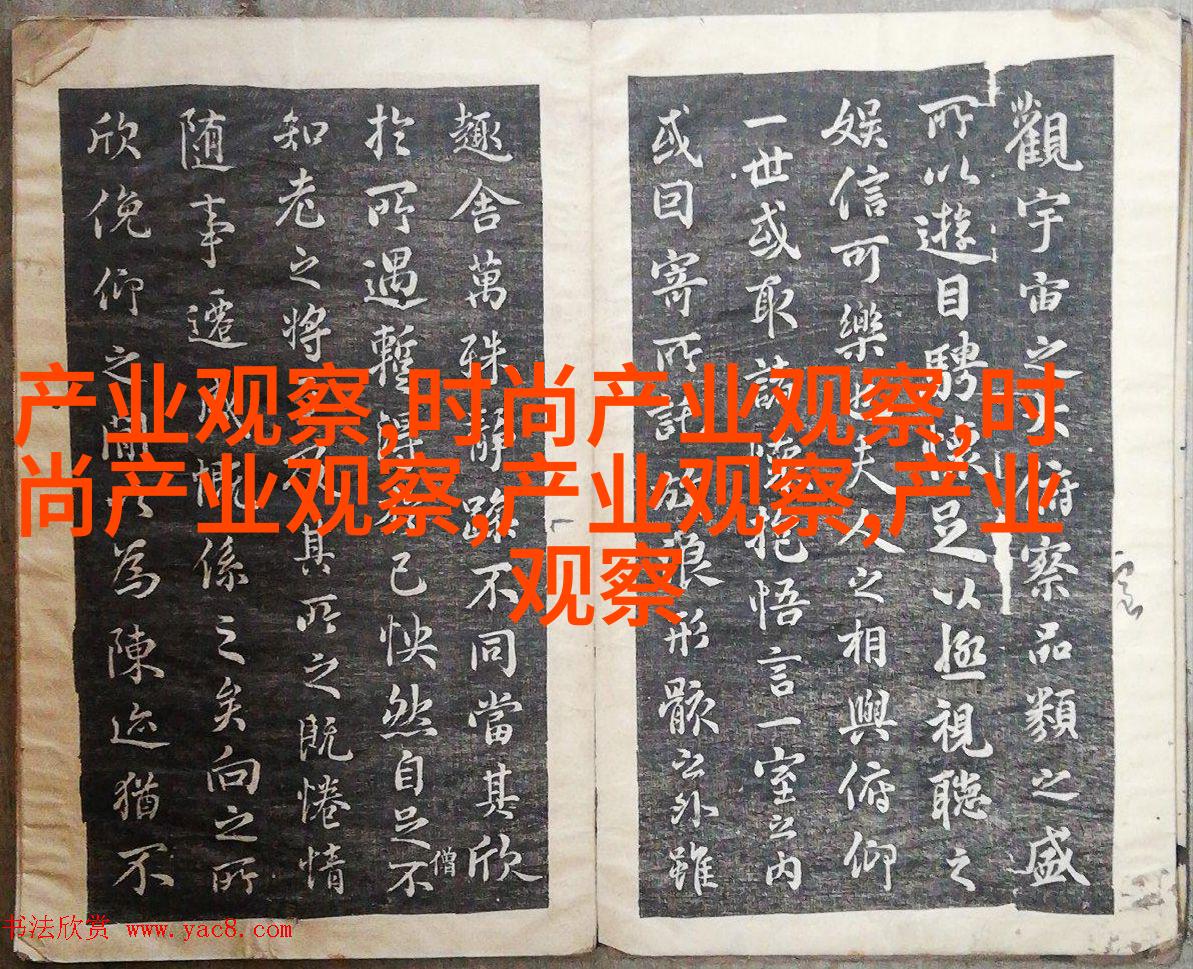 觀宇宙之大俯察品類之盛
所以遊目騁懷足以極視聽之
娛信可樂也夫人之相與俯仰
一世或取諸懷抱悟言一室之內
或因寄所託放浪形骸之外雖
趣舍萬殊靜躁不同當其欣
僧
於所遇暫得於己怏然自足不
知老之將至及其所之既惓情
随事遷感慨係之矣向之所
欣俛仰之間以為陳迹猶不
产业观察,时尚产业观察,时
尚产业观察,产业观察,产业
观察
书法欣赏 www.yac8.com